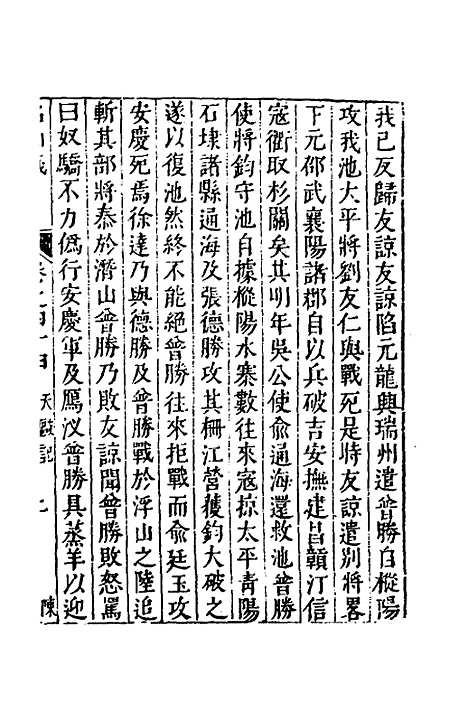 我已反歸友諒友諒陷元龍興瑞州遣普勝自樅陽
攻我池大平將劉友仁與戰死是時友諒遣別將畧
下元邵武襄陽諸郡自以兵破吉安撫建昌贑汀信
衢取杉關矣其明年吳公使俞通海還救池普勝
使將鈞守池自據樅陽水寨數往來寇掠太平青陽
石埭諸縣通海及張德勝攻其柵江營獲鈞大破之
遂以復池然終不能絕普勝往來拒戰而俞廷玉攻
安慶死焉徐達乃與德勝及普勝戰於浮山之陸追
斬其部將泰於濳山普勝乃敗友諒聞普勝敗怒罵
曰奴驕不力僞行安慶軍及鴈汊普勝具蒸羊以迎
名山藏 卷之四十四 天敺記 七 陳